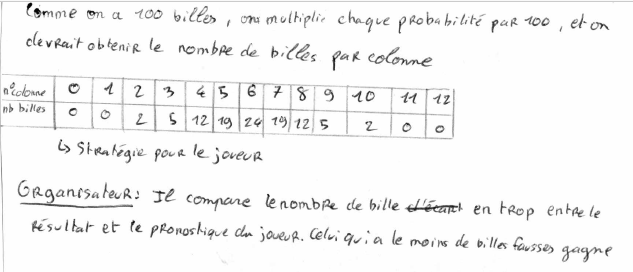 Comme on a 100 billes, on multiplie chaque probabilité par 100, et on
devrait obtenir le nombre de billes par colonne
n°colonne 0 1 2 3 4 5 6 7 8 9 10 11 12
nb billes 0 0 2 5 12 19 24 19 12 5 2 0 0
↳ Stratégie pour le joueur
Organisateur: Il compare le nombre de bille d'écart en trop entre le
résultat et le pronostique du joueur. Celui qui a le moins de billes fausses gagne